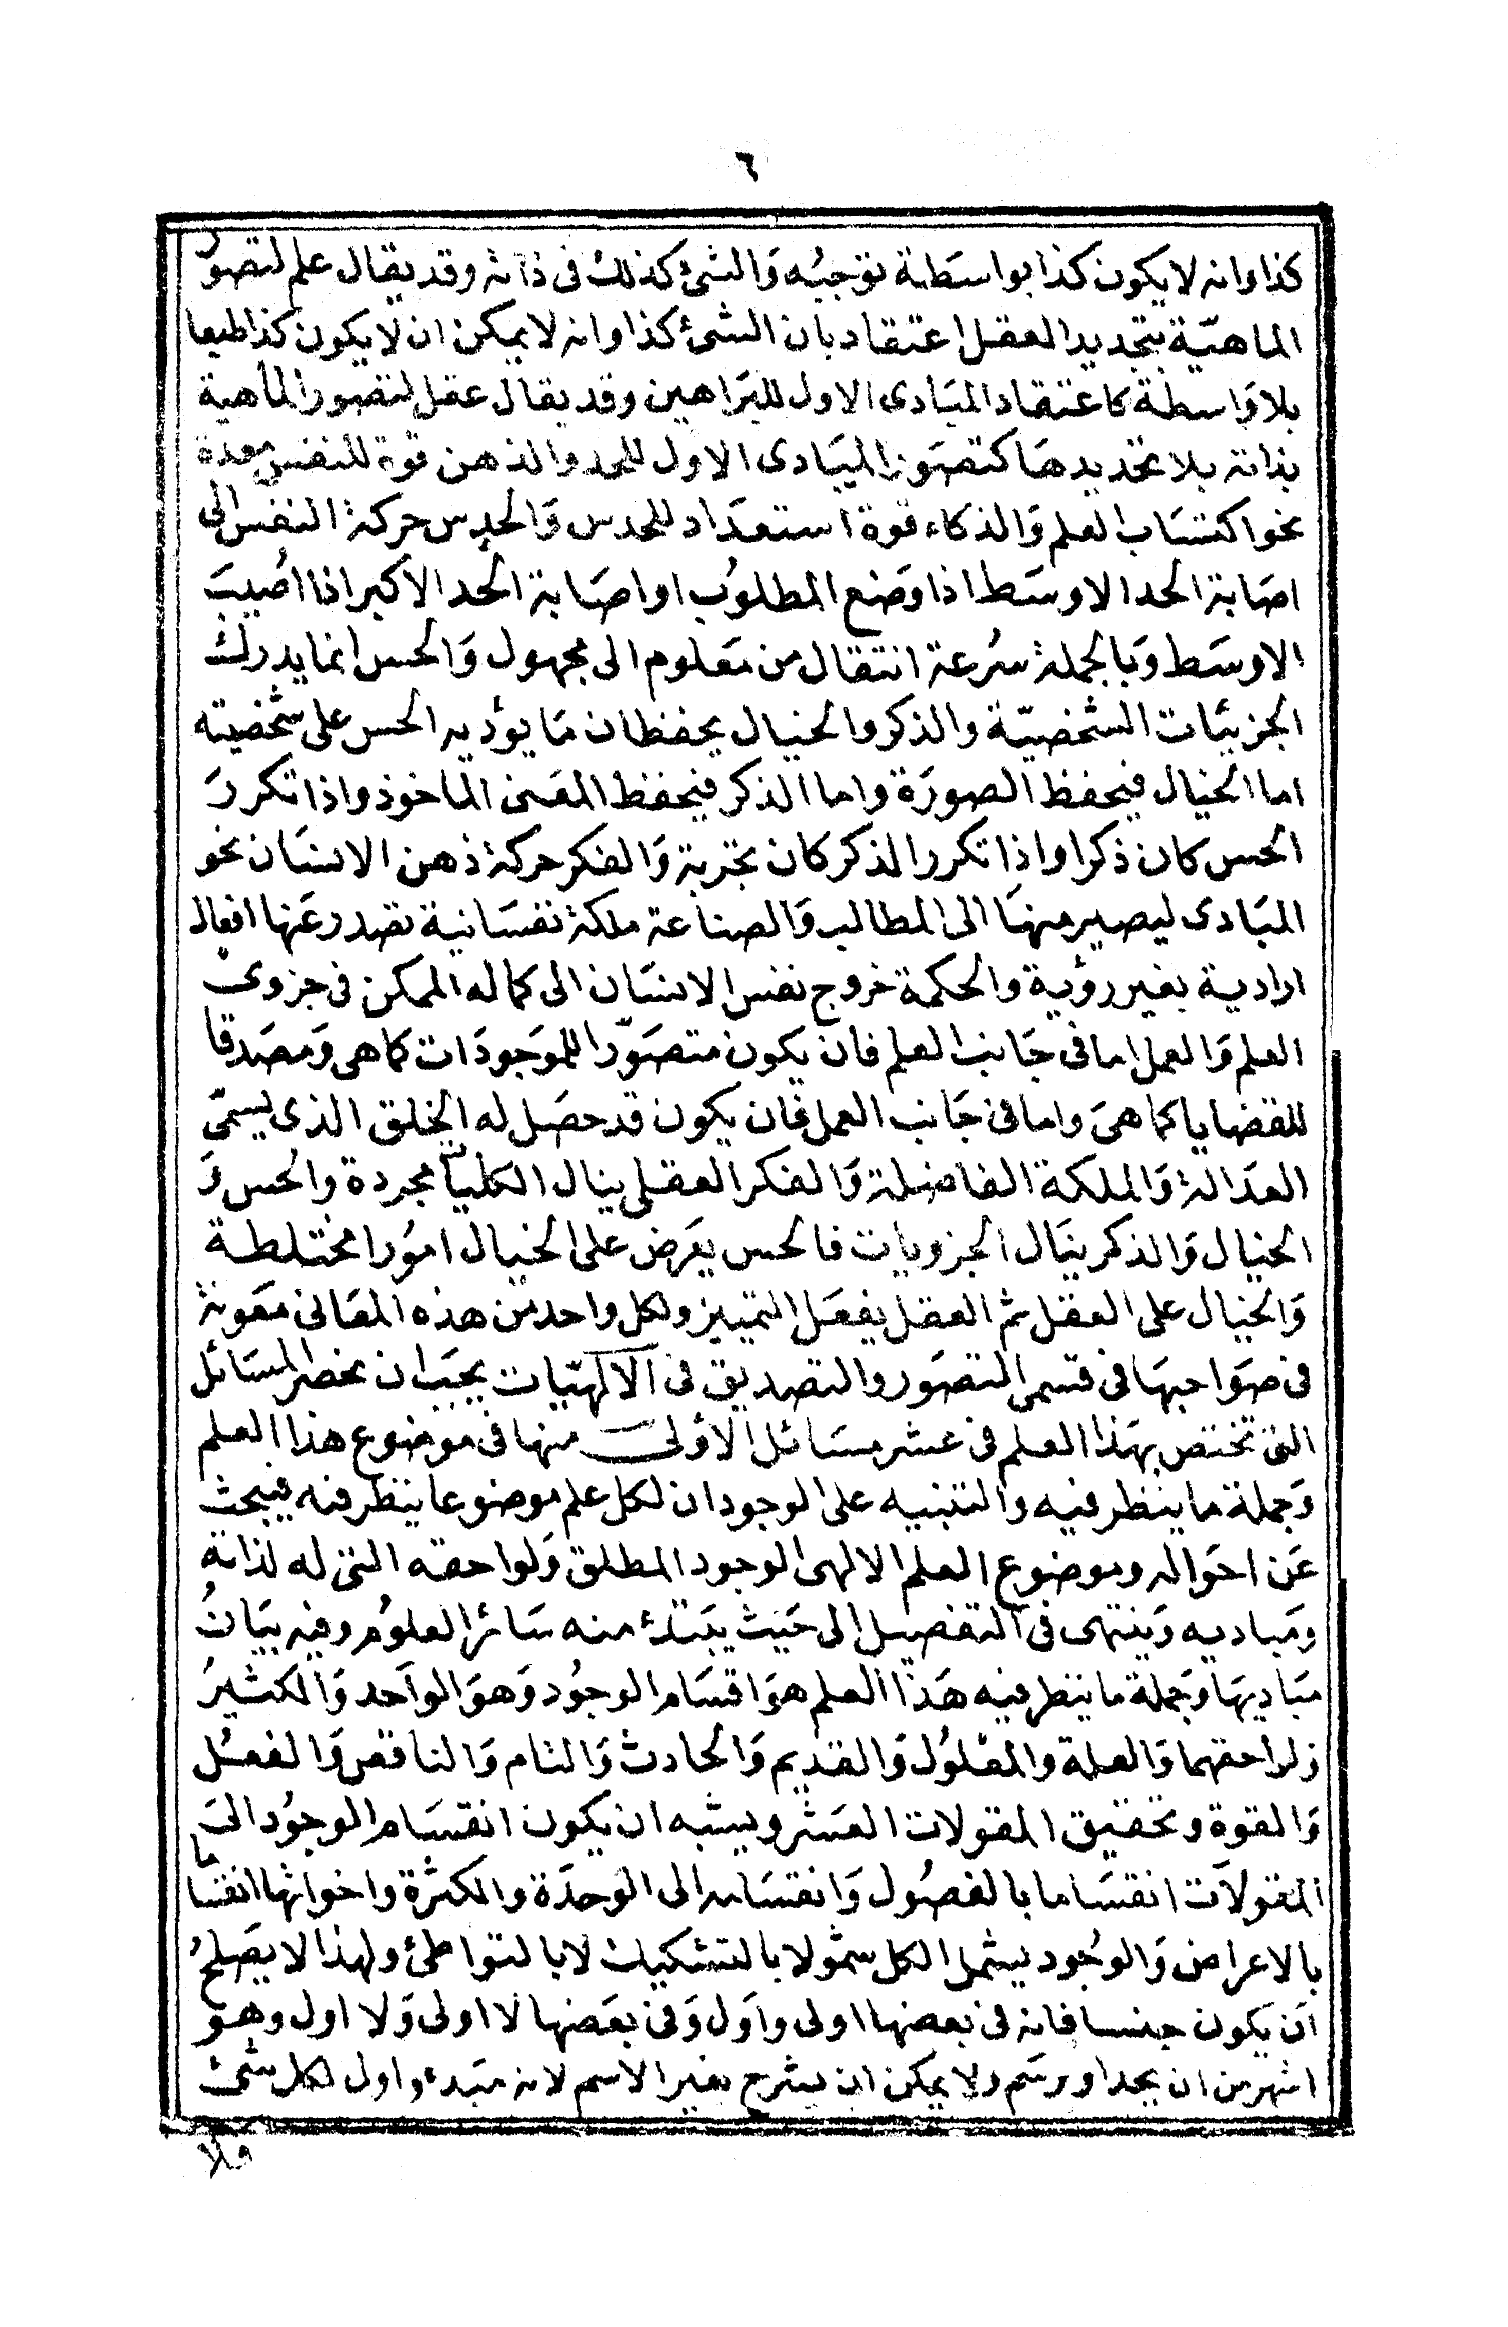 ٦
كذا وانه لا يكون كذا بواسطة توجبه والشئ كذلك فى ذاته وقد يقال علم لتصور
الماهيّة بتحديد العقل اعتقاد بان الشئ كذا وانه لا يمكن ان لا يكون كذا طبعا
بلا واسطة كاعتقاد المبادى الاول للبراهين وقد يقال عقل لتصور الماهية
بذاته بلا تحديدها كتصور المبادى الاول للحد والذهن قوة للنفس معدة
نحو اكتساب العلم والذكاء قوة استعداد للحدس والحدس حركة النفس الى
اصابة الحد الاوسط اذا وضع المطلوب او اصابة الحد الاكبر اذا اصيب
الاوسط وبالجملة سرعة انتقال من معلوم الى مجهول والحس انما يدرك
الجزئيات الشخصيّة والذكر والخيال يحفظان ما يؤديه الحس على شخصيته
اما الخيال فيحفظ الصورة واما الذكر فيحفظ المعنى الماخوذ واذا تكرر
الحس كان ذكرا واذا تكرر الذكر كان تجربة والفكر حركة ذهن الانسان نحو
المبادى ليصير منها الى المطالب والصناعة ملكة نفسانية تصدر عنها افعال
ارادية بغير رؤية والحكمة خروج نفس الانسان الى كماله الممكن فى جزوى
العلم والعمل اما فى جانب العلم فان يكون متصوّرا للموجودات كما هى ومصدقا
للقضايا كما هى واما فى جانب العمل فان يكون قد حصل له الخلق الذى يسمّى
العدالة والملكة الفاضلة والفكر العقلى ينال الكليات مجردة والحس و
الخيال والذكر ينال الجزويات فالحس يعرض على الخيال امورا مختلطة
والخيال على العقل ثم العقل يفعل التمييز ولكل واحد من هذه المعانى معونة
فى صواحبها فى قسمى التصور والتصديق فى الآلهيّات يجب ان نحصر المسائل
التى تختص بهذا العلم فى عشر مسائل الاولى منها فى موضوع هذا العلم
وجملة ما ينظر فيه والتنبيه على الوجود ان لكل علم موضوعا ينظر فيه فيبحث
عن احواله وموضوع العلم الالهى الوجود المطلق ولواحقه التى له لذاته
ومباديه وينتهى فى التفصيل الى حيث يبتدئ منه سائر العلوم وفيه بيان
مباديها وجملة ما ينظر فيه هذا العلم هو اقسام الوجود وهو الواحد والكثير
ولواحقهما والعلة والمعلول والقديم والحادث والتام والناقص والفعل
والقوة وتحقيق المقولات العشر ويشبه ان يكون انقسام الوجود الى
المقولات انقساما بالفصول وانقسامه الى الوحدة والكثرة واخواتها انقساما
بالاعراض والوجود يشمل الكل شمولا بالتشكيك لا بالتواطئ ولهذا لا يصلح
ان يكون جنسا فانه فى بعضها اولى واول وفى بعضها لا اولى ولا اول وهو
اشهر من ان يحد او يرسم ولا يمكن ان يشرح بغير الاسم لانه مبدء واول لكل شئ
ولا